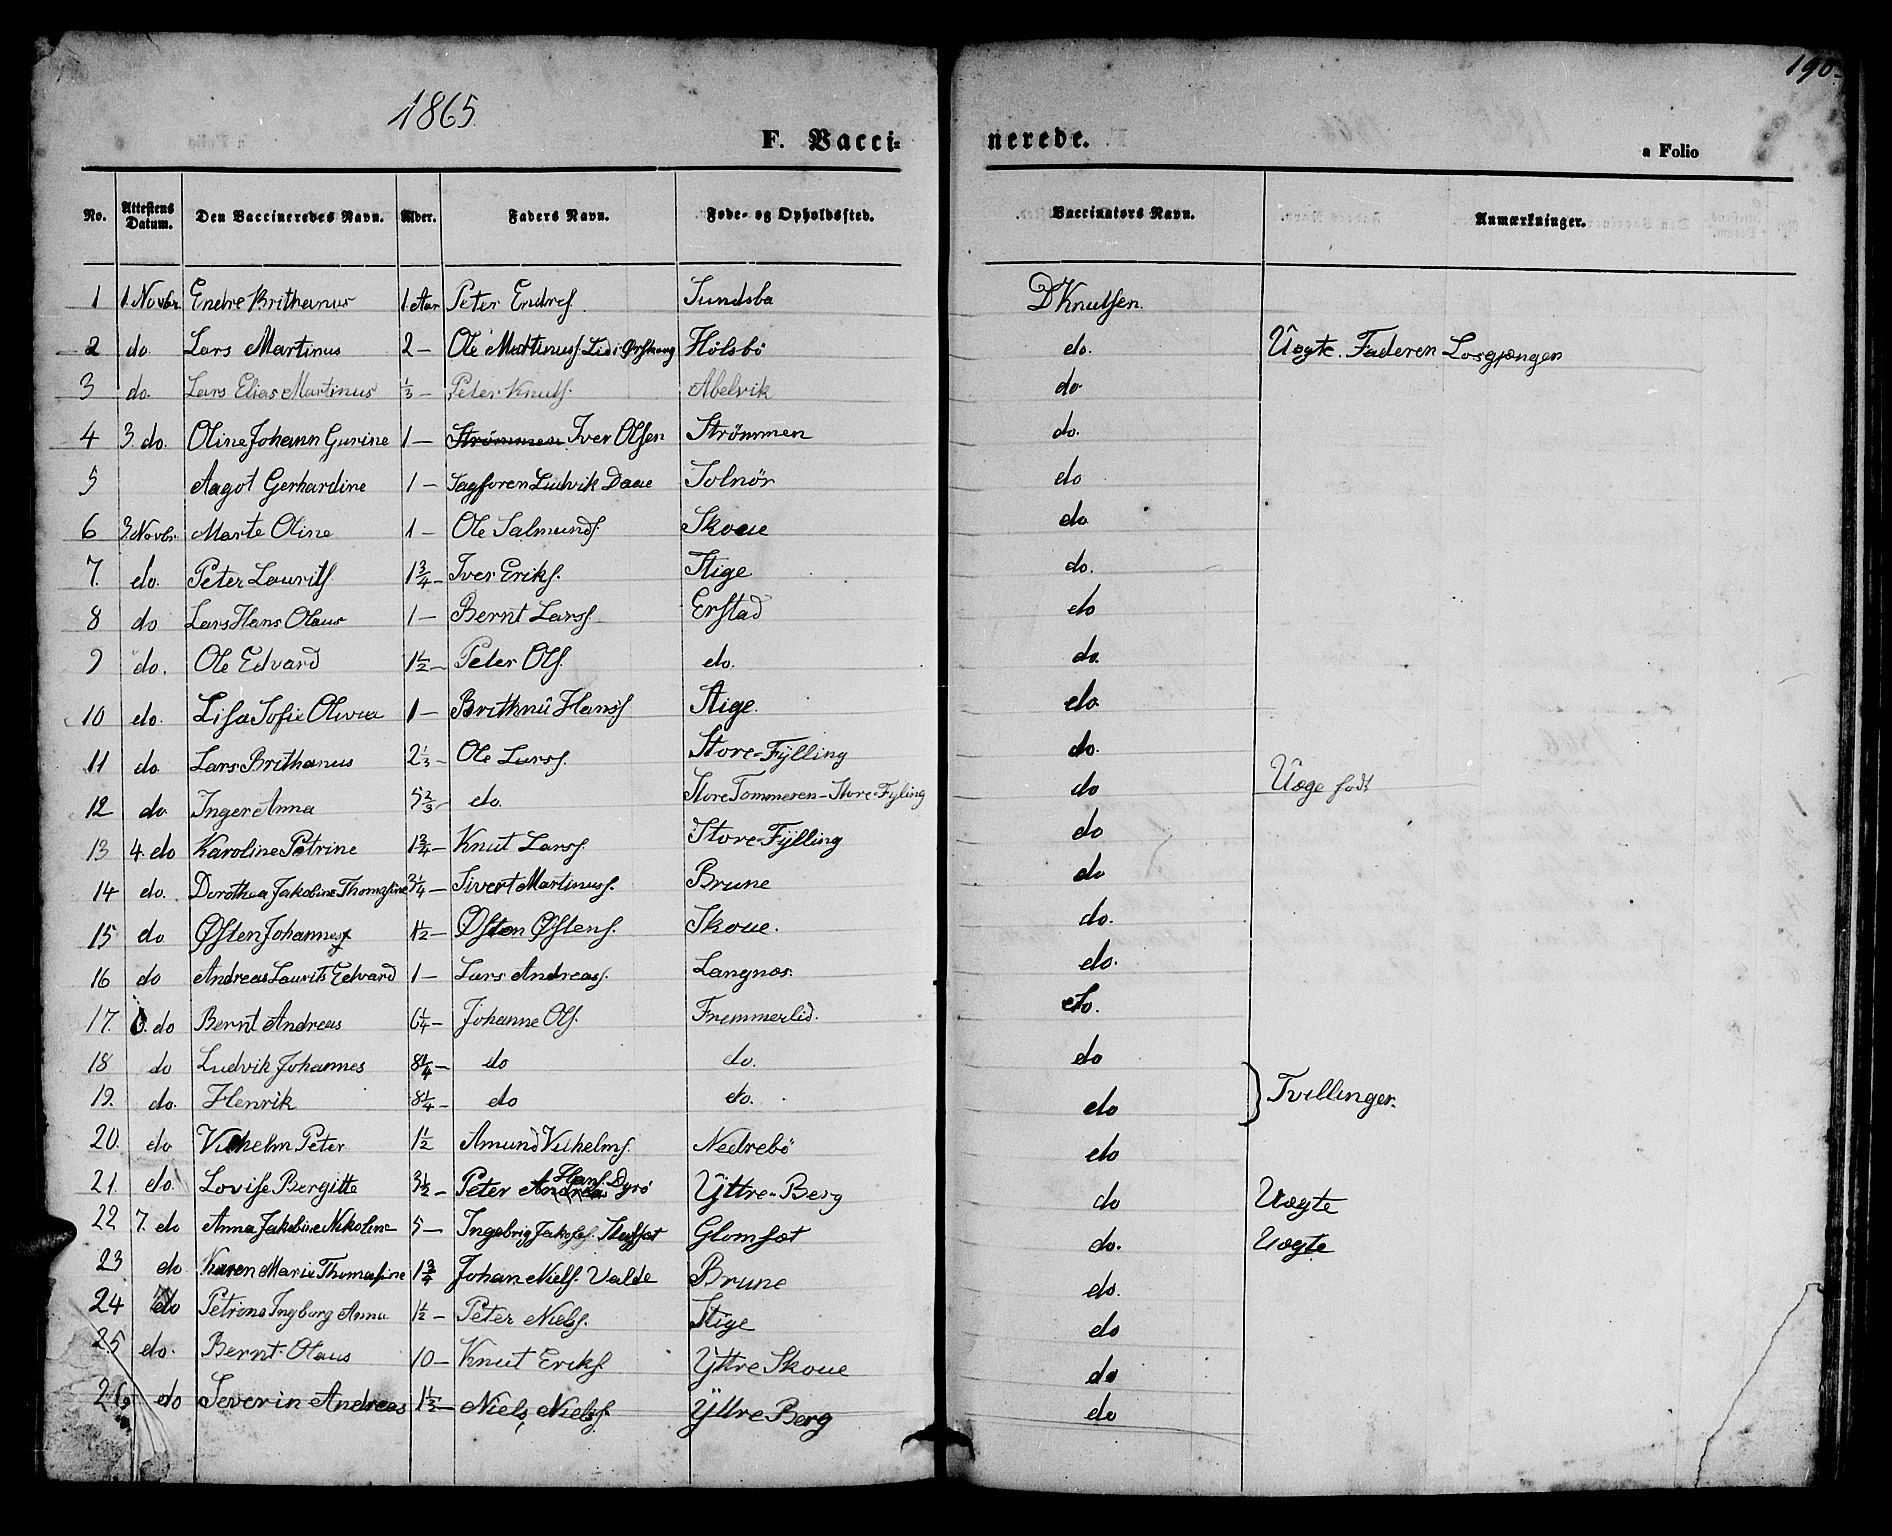 190.
1865.
F. Vacci= nerede. a Folio
No. Attestens Datum. Den Vaccineredes Navn. Alder. Faders Navn. Føde- og Opholdssted. Vaccinators Navn. Anmærkninger.
1 1. Novbr. Endre Brithanus 1. Aar Peter Endres. Sundsbø D Knutsen.
2 do. Lars Martinus 2 — Ole Martinus. Lid i Ørskoug Hølsbö do. Uægte. Faderen Losgjængen
3 do. Lars Elias Martinus 1/3 — Peter Knuts. Abelvik do.
4 3. do. Oline Johann Gurine 1 — Iver Olsen Strömmen do.
5 Aagot Gerhardine 1 — Sagforen Ludvik Daae Solnör do
6 3 Novbr. Marte Oline 1 — Ole Salmunds. Skoue do
7. do. Peter Laurits. 1 3/4 — Iver Eriks. Stige do.
8 do Lars Hans Olaus 1 — Bernt Lars. Erstad do
9 do. Ole Edvard 1 1/2 — Peter Ols. do. do.
10 do. Lisa Sofie Olivia 1 — Brithnu Hans. Stige. do
11 do Lars Brithanus 2 1/3 — Ole Lars. Store-Fÿlling do.
12 do Inger Anna 5 2/3 — do. Store Tommeren - Store-Fyling do Uæge født
13 4. do Karoline Petrine 1 3/4 — Knut Lars. Store-Fÿlling do
14 do. Dorothea Jakobine Thomasine 3 1/4 — Sivert Martinus. Brune do
15 do Østen Johannes 1 1/2 — Østen Østens. Skoue. do.
16 do Andreas Laurits Edvard 1 — Lars Andreas. Langnæs. do.
17. 6. do Bernt Andreas 6 1/4 — Johanne Ols. Fremmerlid. do.
18 do Ludvik Johannes 8 1/4 — do do. do
19. do. Henrik 8 1/4 — do do. do } Tvillinger.
20. do Vilhelm Peter 1 1/2 Amund Vilhelms. Nedrebö do
21. do. Lovise Bergitte 3 1/2 — Peter Hans. Dyrö Ÿttre-Berg do Uægte
22 7. do Anna Jakobine Nikoline 5 — Ingebrig Jakobs. Glomsæt do. Uægte
23 do Karen Marie Thomasine 1 3/4 Johan Niels. Valde Brune do.
24 do Petrine Ingborg Anna 1 1/2 — Peter Niels. Stige do
25 do. Bernt Olaus 10 — Knut Eriks. Ÿttre Skoue do
26 do Severin Andreas 1 1/2 — Niels Niels. Ÿttre Berg do